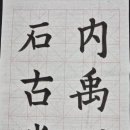 内禹
石古